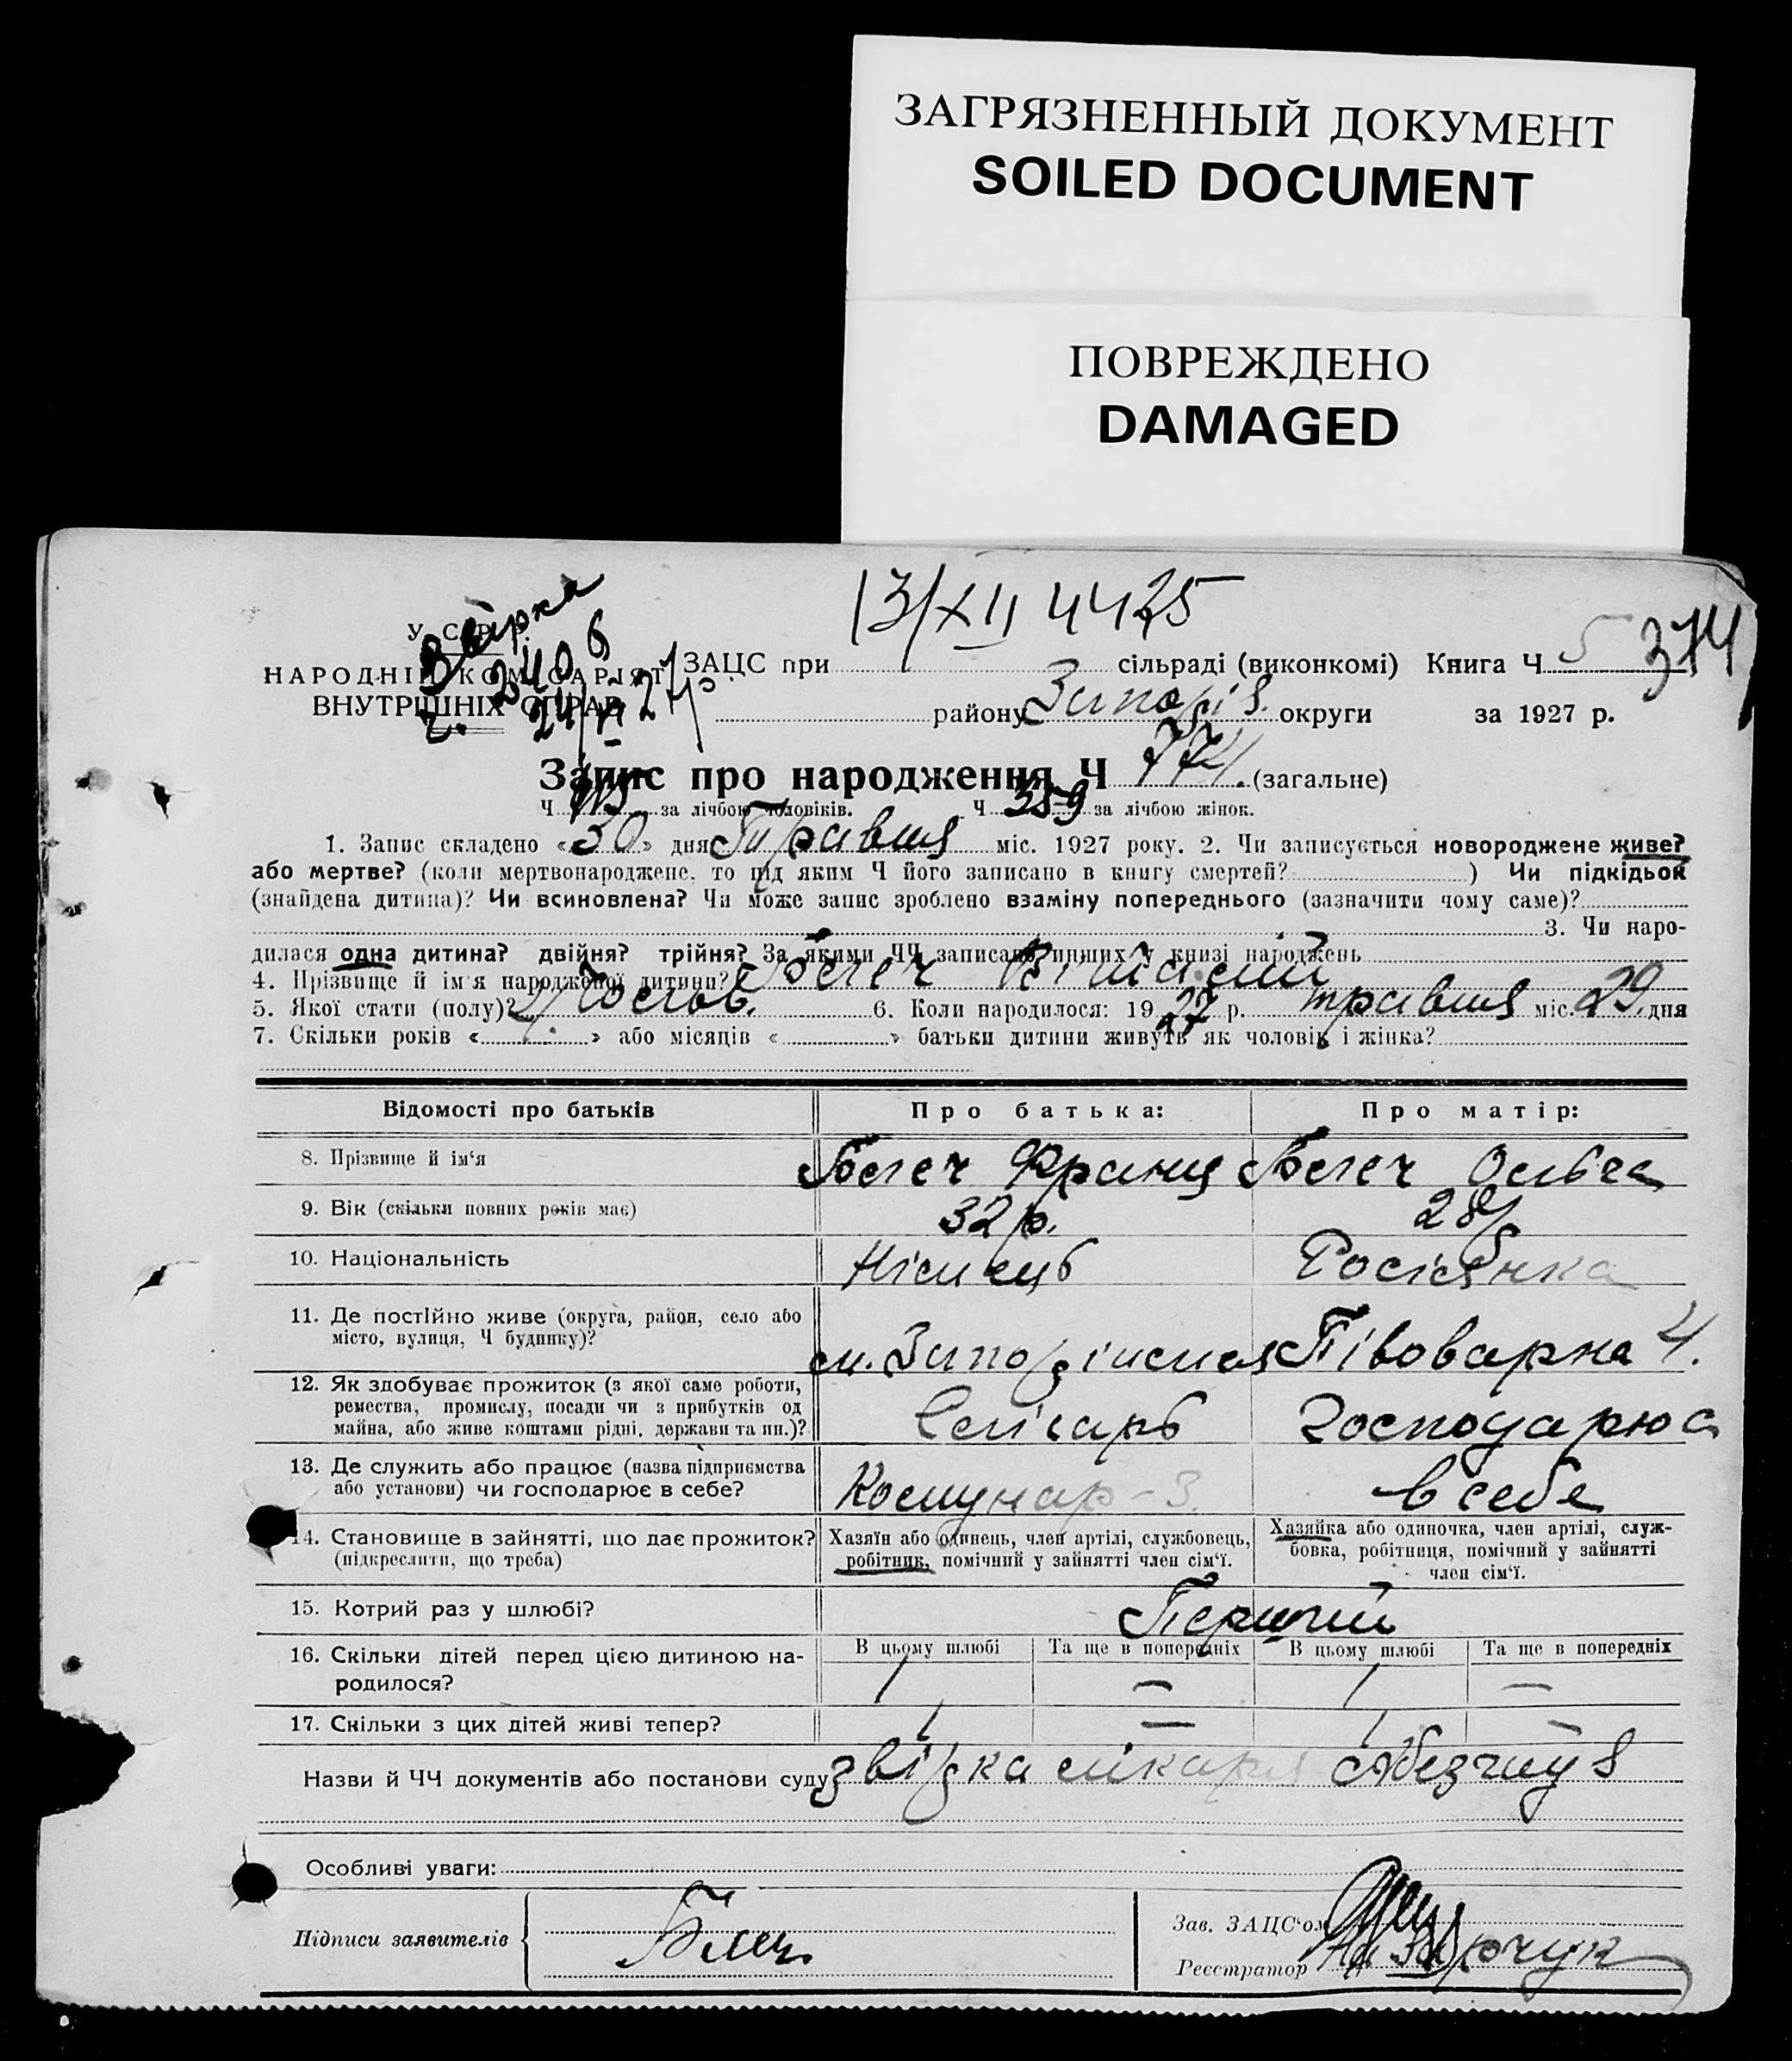 ЗАГРЯЗНЕННЫЙ ДОКУМЕНТ
SOILED DOCUMENT
ПОВРЕЖДЕНО
DAMAGED
13/XII 4425
У. С. Р. Р.
НАРОДНІЙ КОМІСАРІЯТ
ВНУТРІШНІХ СПРАВ
ЗАЦС при сільраді (виконкомі) Книга Ч 5 374
району Запоріз. округи за 1927 р.
Запис про народження Ч 774. (загальне)
Ч за лічбою чоловіків. Ч 359 за лічбою жінок.
1. Запис складено « 30 » дня Травня міс. 1927 року. 2. Чи записується новороджене живе?
або мертве? (коли мертвонароджене, то під яким Ч його записано в книгу смертей? ) Чи підкідьок
(знайдена дитина)? Чи всиновлена? Чи може запис зроблено взаміну попереднього (зазначити чому саме)?
3. Чи наро-
дилася одна дитина? двійня? трійня? За якими ЧЧ записано инших у книзі народжень
4. Прізвище й ім'я народженої дитини? Белеч Віталій
5. Якої статі (полу)? Чолов. 6. Коли народилося: 1927 р. травня міс. 29 дня
7. Скільки років « » або місяців « » батьки дитини живуть як чоловік і жінка?
Відомості про батьків Про батька: Про матір:
8. Прізвище й ім'я Белеч Франц Белеч Ольга
9. Вік (скільки повних років має) 32 р. 28
10. Національність Німець Росіянка
11. Де постійно живе (округа, район, село або
місто, вулиця, Ч будинку)? м. Запоріжжя Півоварна 4.
12. Як здобуває прожиток (з якої саме роботи,
ремества, промислу, посади чи з прибутків од
майна, або живе коштами рідні, держави та ин.)? Слісарь Господарює
13. Де служить або працює (назва підприємства
або установи) чи господарює в себе? Комунар - З. в себе
14. Становище в зайнятті, що дає прожиток?
(підкреслити, що треба)
Хазяїн або одинець, член артілі, службовець,
робітник, помічний у зайнятті член сім'ї.
Хазяйка або одиночка, член артілі, служ-
бовка, робітниця, помічний у зайнятті
член сім'ї.
15. Котрий раз у шлюбі? Перший
В цьому шлюбі Та ще в попередніх В цьому шлюбі Та ще в попередніх
16. Скільки дітей перед цією дитиною на-
родилося? 1 — 1 —
17. Скільки з цих дітей живі тепер? 1 — 1 —
Назви й ЧЧ документів або постанови суду звірка лікаря
Особливі уваги:
Підписи заявителів
Зав. ЗАЦС'ом
Реєстратор